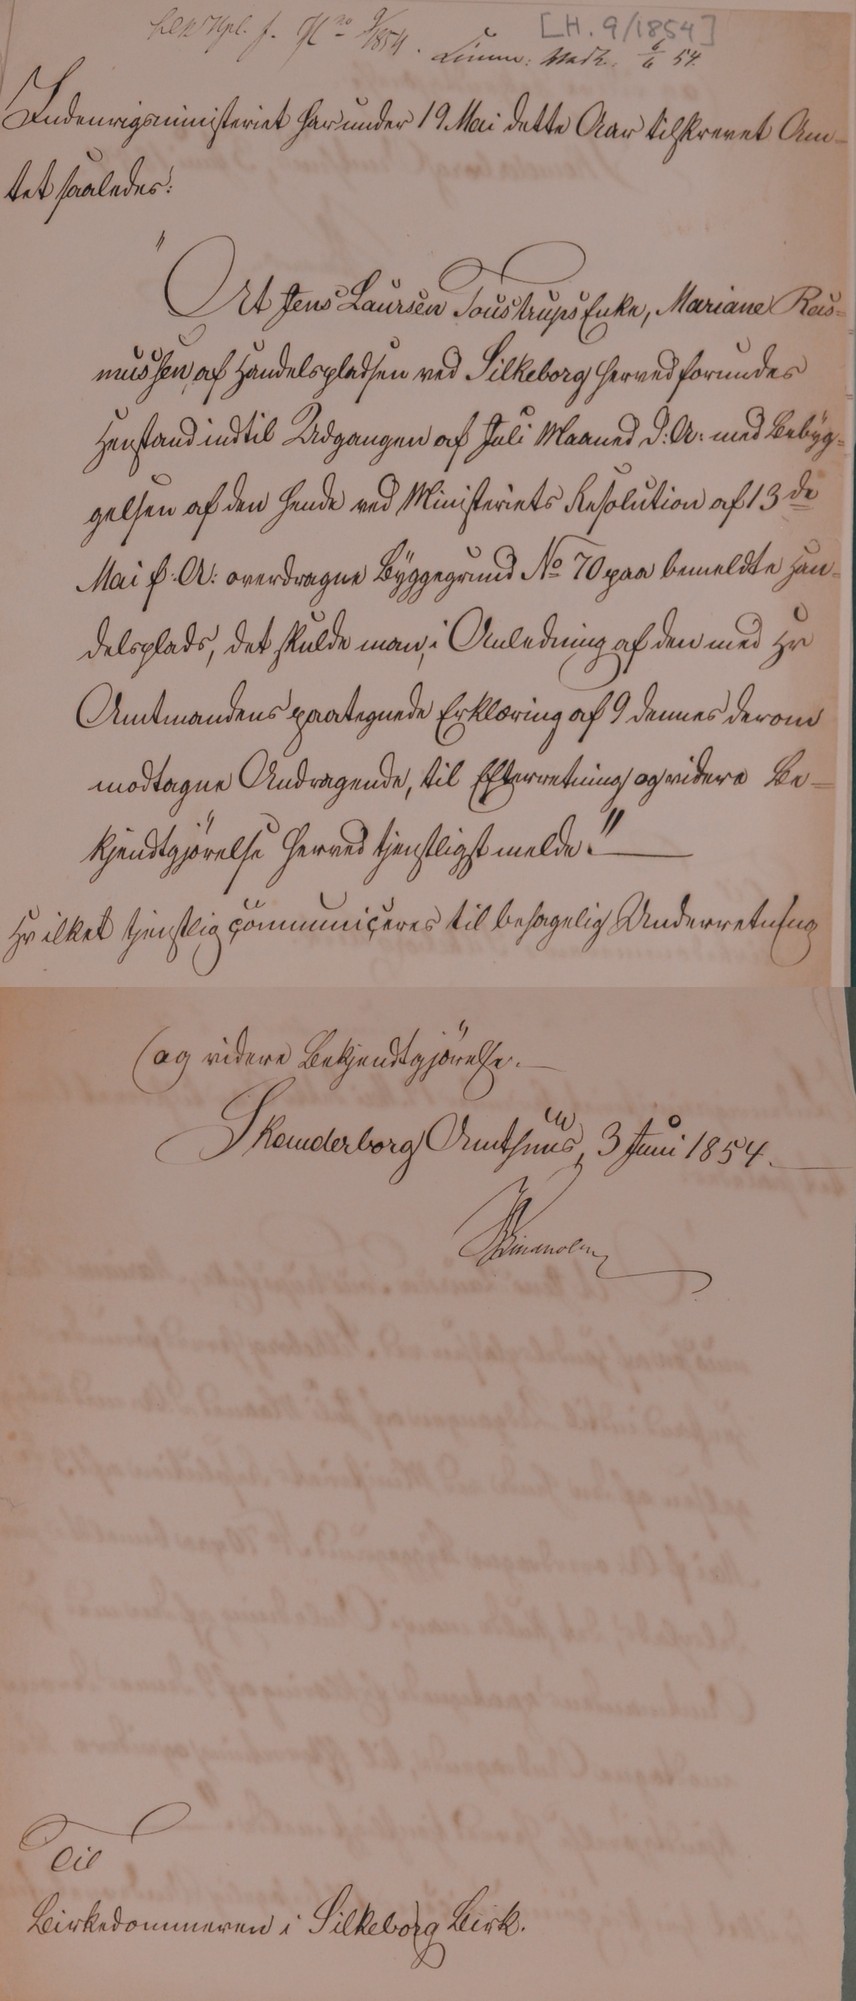 [H. 9/1854]
9/1854. 6/6 54.
Indenrigsministeriet har under 19 Mai dette Aar tilskrevet Am-
tet saaledes:
"At Jens Laursen Toustrups Enke, Mariane Ras-
mussen, af Handelspladsen ved Silkeborg herved forundes
Henstand indtil Udgangen af Juli Maaned d: A: med Bebyg-
gelsen af den hende ved Ministeriets Resolution af 13 de
Mai f: A: overdragne Byggegrund No 70 paa bemeldte Han-
delsplads, det skulde man, i Anledning af den med Hr
Amtmandens paategnede Erklæring af 9 dennes derom
modtagne Andragende, til Efterretning og videre Be-
kjendtgjörelse herved tjenstligst melde."
Hvilket tjenstlig communiceres til behagelig Underretning
og videre Bekjendtgjörelse.
Skanderborg Amthuus, 3 Juni 1854.
Til
Birkedommeren i Silkeborg Birk.